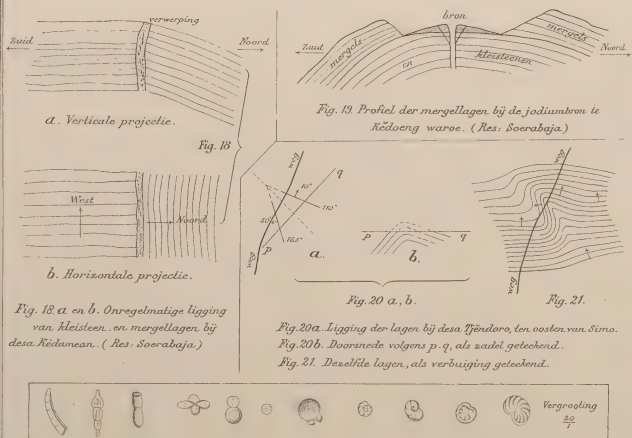 verwerping
Zuid
Noord
a. Verticale projectie.
Fig. 18
West
Noord
b. Horizontale projectie.
Fig. 18. a en b. Onregelmatige ligging
van kleisteen en mergellagen bij
desa Kĕdamean. (Res: Soerabaja)
bron
Zuid
mergels
en
kleisteenen
mergels
Noord
Fig. 19. Profiel der mergellagen bij de jodiumbron te
Kĕdoeng waroe. (Res: Soerabaja)
weg
q
15°
112°
50°
165°
p
a.
weg
p
q
b.
Fig. 20 a., b.
weg
weg
Fig. 21.
Fig. 20a. Ligging der lagen bij desa Tjĕndoro, ten oosten van Simo.
Fig. 20b. Doorsnede volgens p.q, als zadel geteekend.
Fig. 21. Dezelfde lagen, als verbuiging geteekend.
Vergrooting
20
1